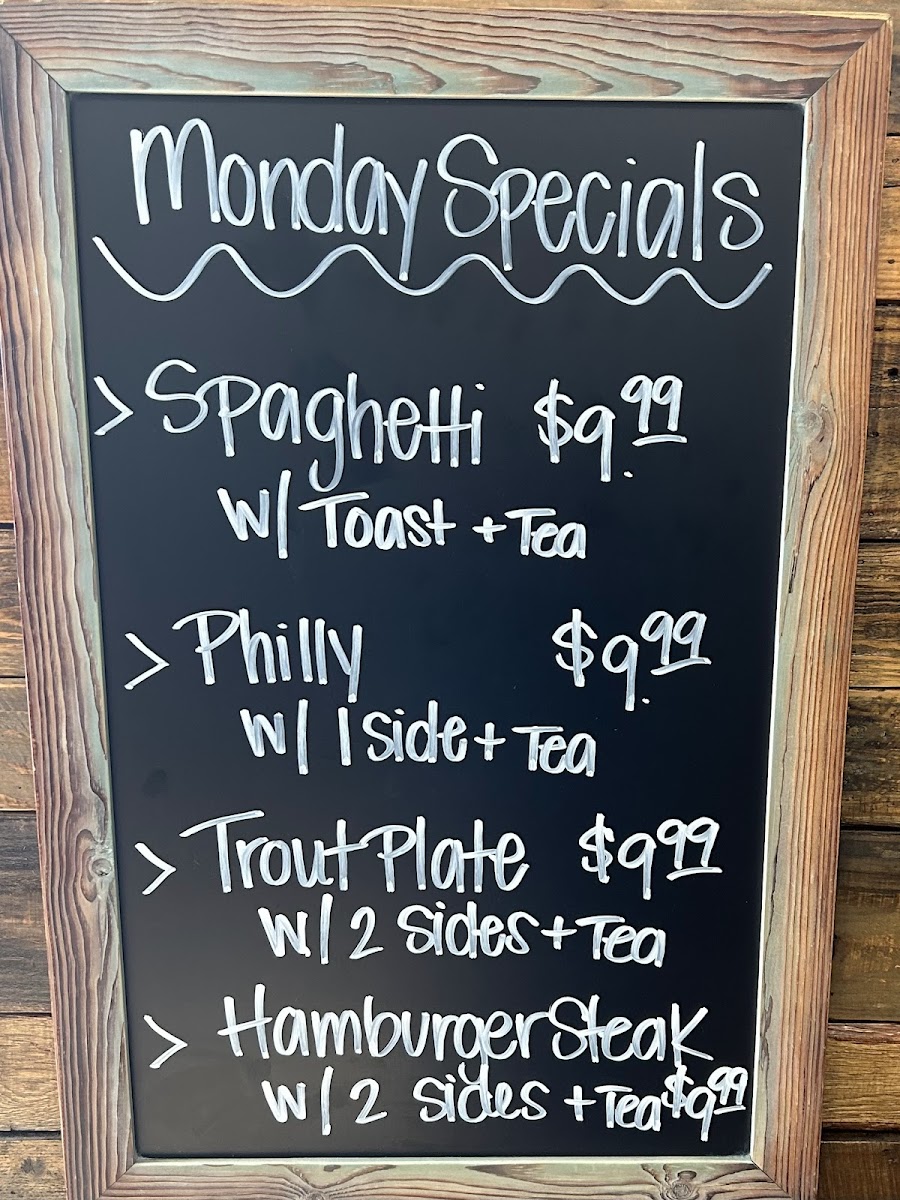 Monday Specials
> Spaghetti $9.99
w/ Toast + Tea
> Philly $9.99
w/ 1 side + Tea
> Trout Plate $9.99
w/ 2 sides + Tea
> Hamburger Steak
w/ 2 sides + Tea $9.99